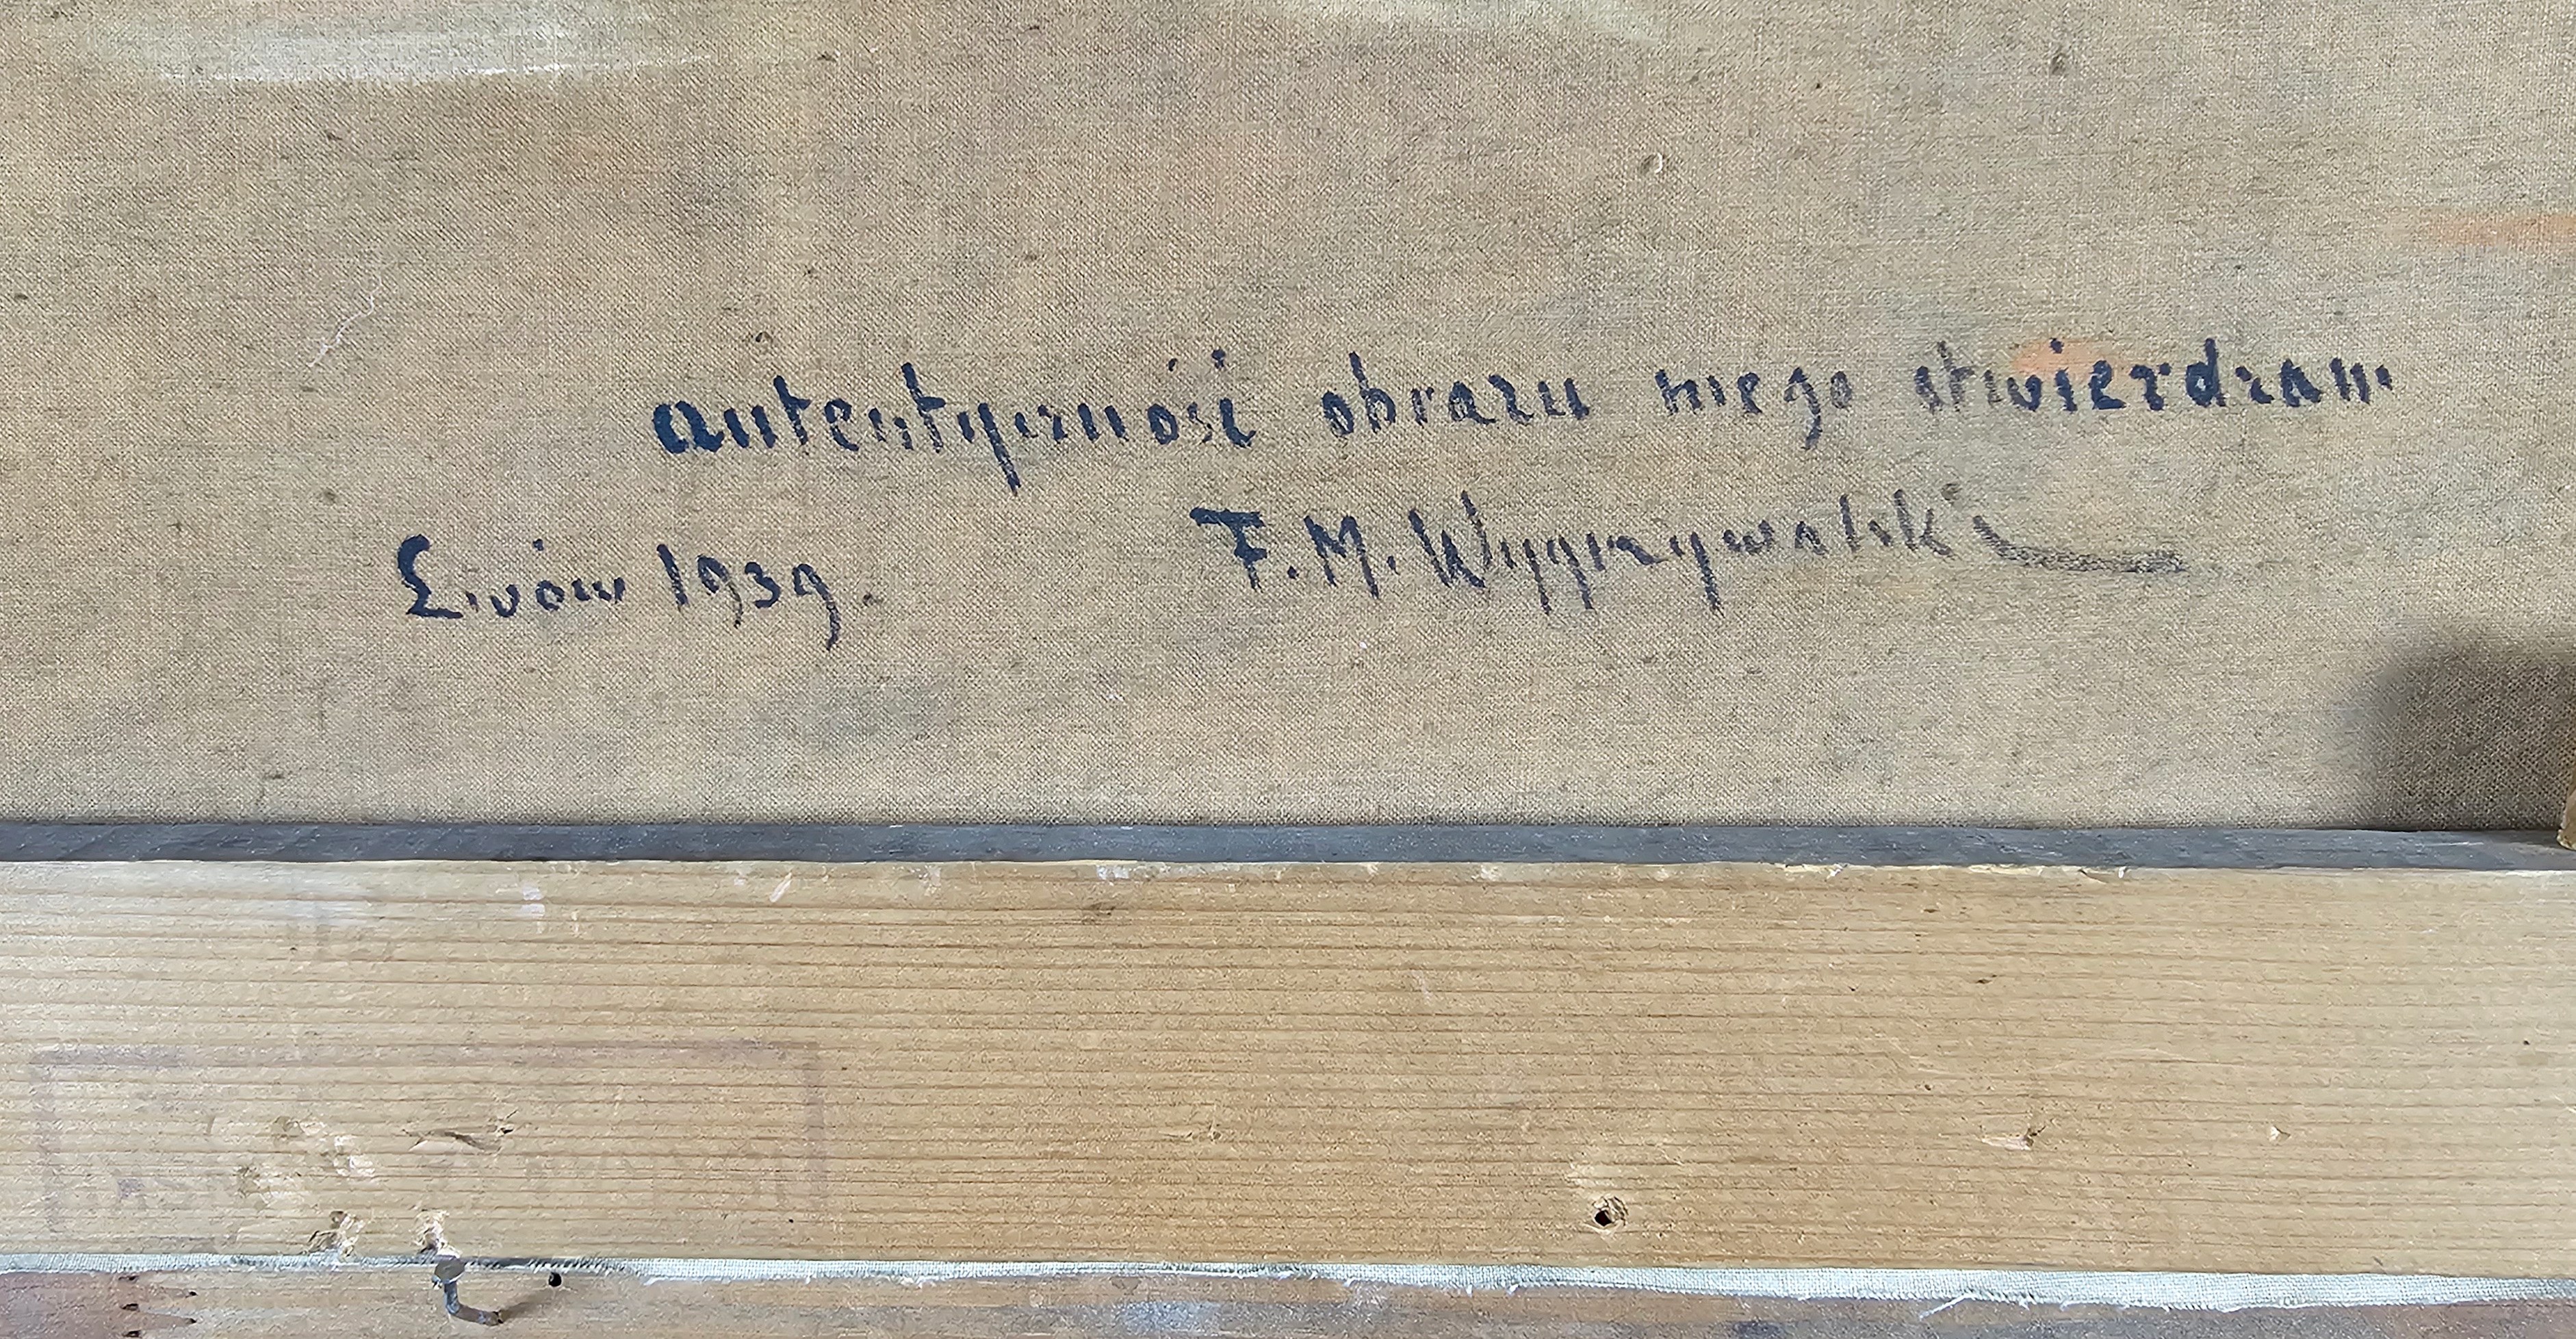 autentyczność obrazu mego stwierdzam
Lwów 1939. F. M. Wygrzywalski